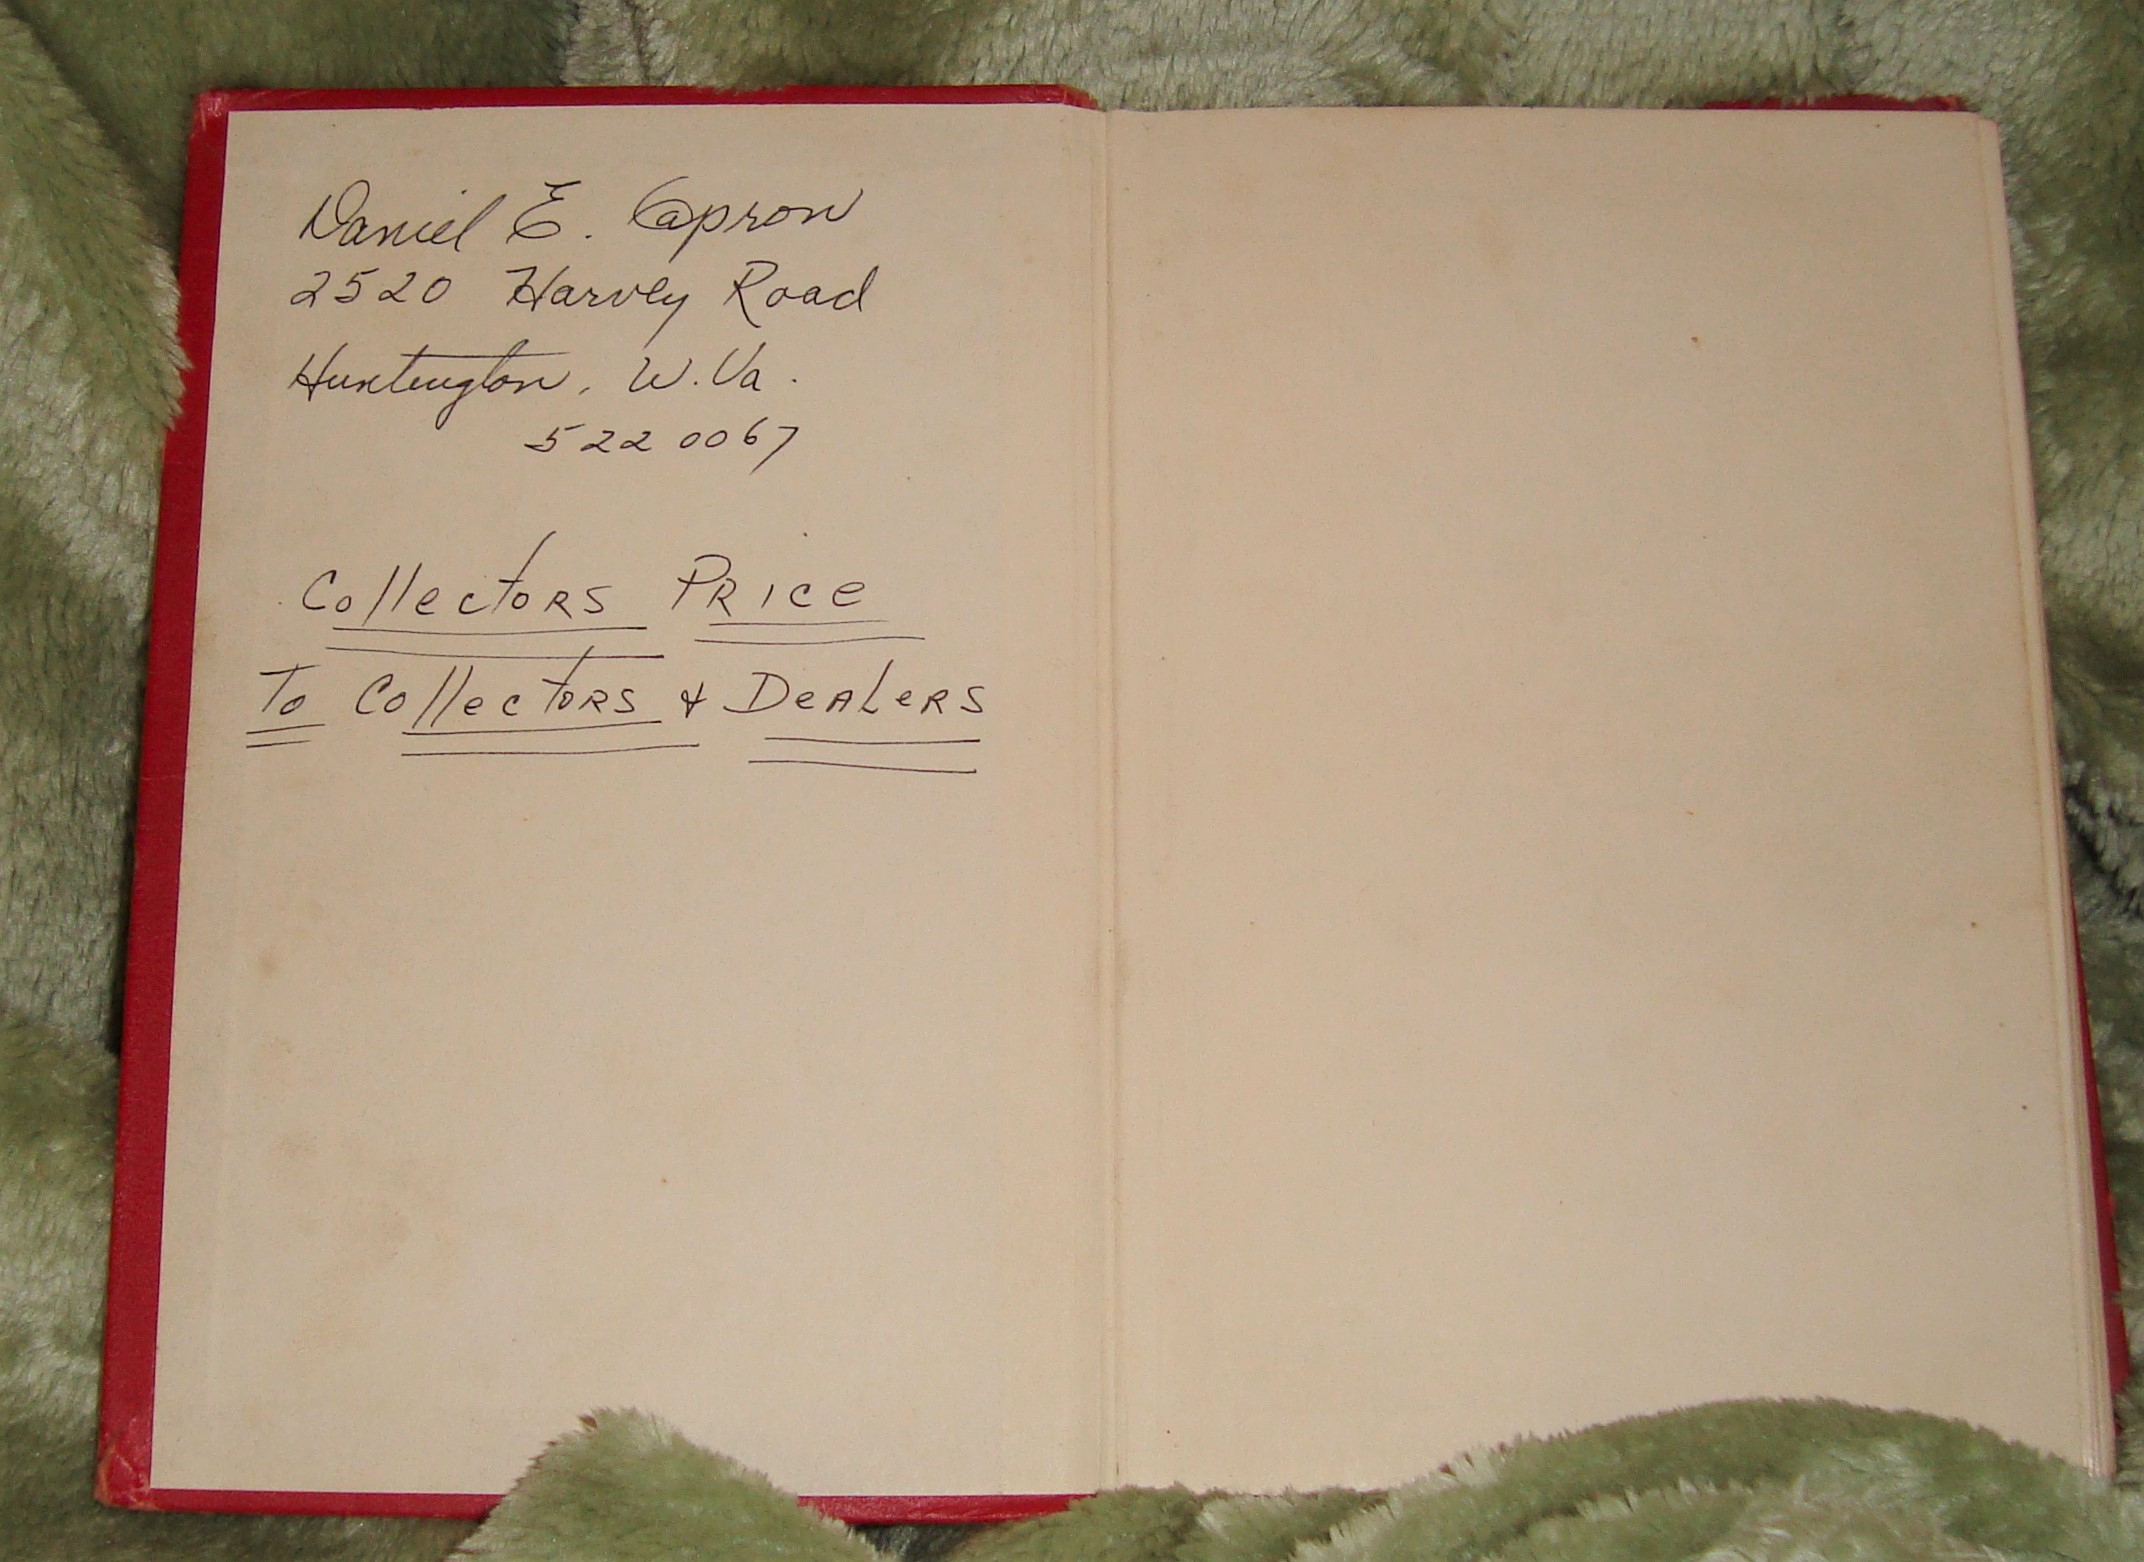 Daniel E. Capron
2520 Harvey Road
Huntington, W. Va.
522 0067
Collectors Price
To Collectors & Dealers